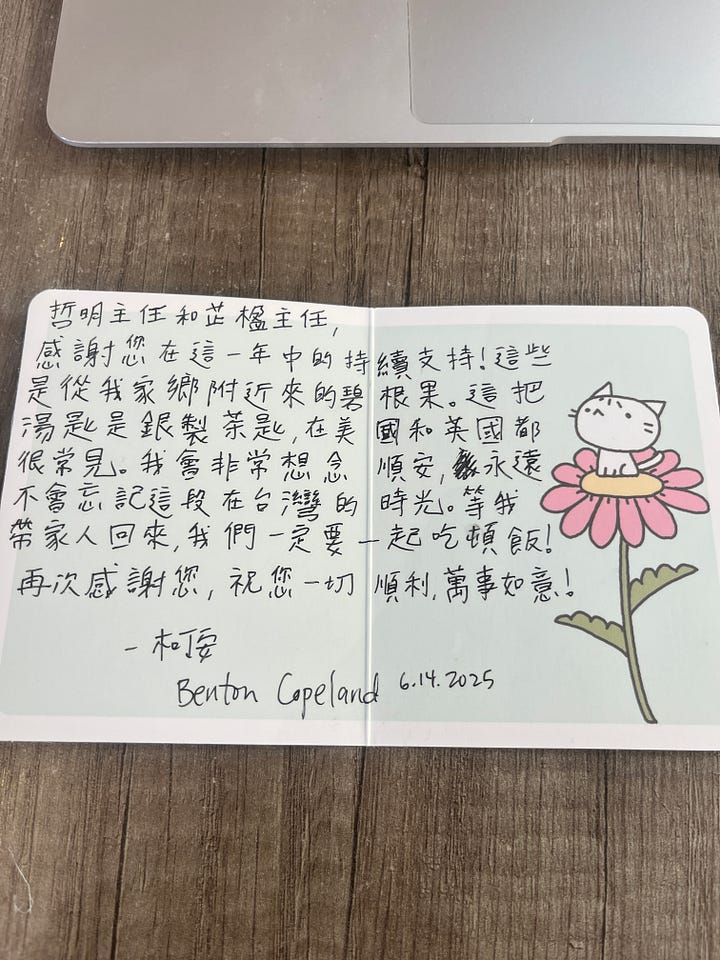 哲明主任和芷楹主任,
感謝您在這一年中的持續支持!這些
是從我家鄉附近來的碧根果。這把
湯匙是銀製茶匙,在美國和英國都
很常見。我會非常想念順安,永遠
不會忘記這段在台灣的時光。等我
帶家人回來,我們一定要一起吃頓飯!
再次感謝您,祝您一切順利,萬事如意!
- 柯安
Benton Copeland 6.14.2025